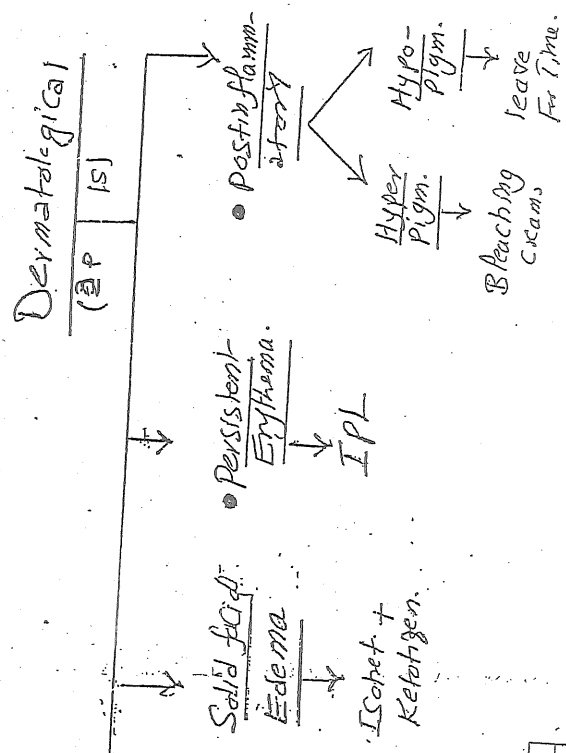 Dermatological
(2 P 1S)
Solid facial
Edema
Isotret. +
Ketotifen.
• Persistent
Erythema.
IPL
• Postinflamm-
atory
Hyper
Pigm.
Bleaching
cream,
Hypo-
Pigm.
leave
For Time.